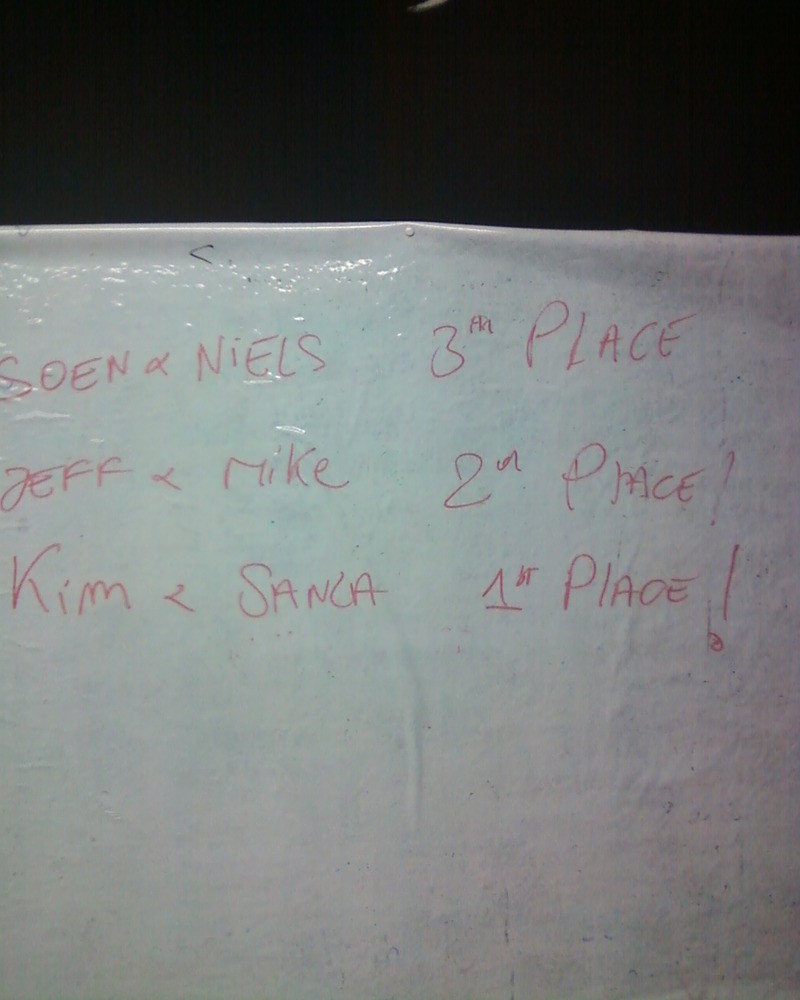 SOEN & NiELS 3rd PLACE
JEFF & Mike 2nd PlACE!
Kim & 1st PlACE!